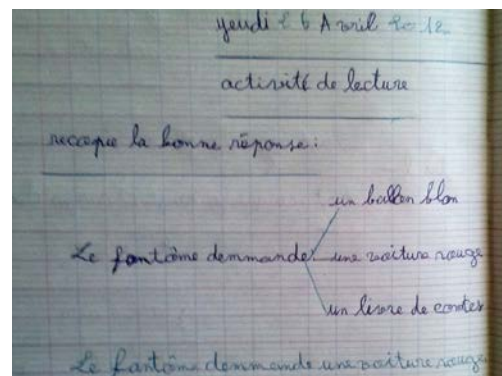 jeudi 26 Avril 2012
activité de lecture
recopie la bonne réponse :
un ballon blan
Le fantôme demmande une voiture rouge
un livre de contes
Le fantôme demmande une voiture rouge